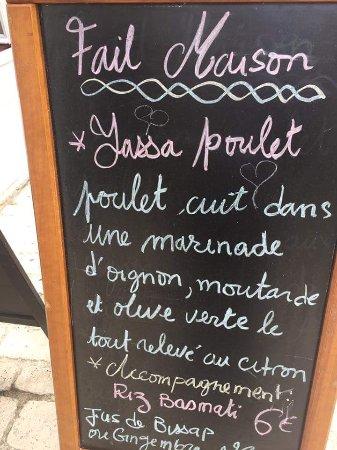 Fait Maison
* Yassa poulet
poulet cuit dans
une marinade
d'oignon, moutarde
et olive verte le
tout relevé au citron
* Accompagnement:
Riz Basmati 6€
Jus de Bissap
ou Gingembre